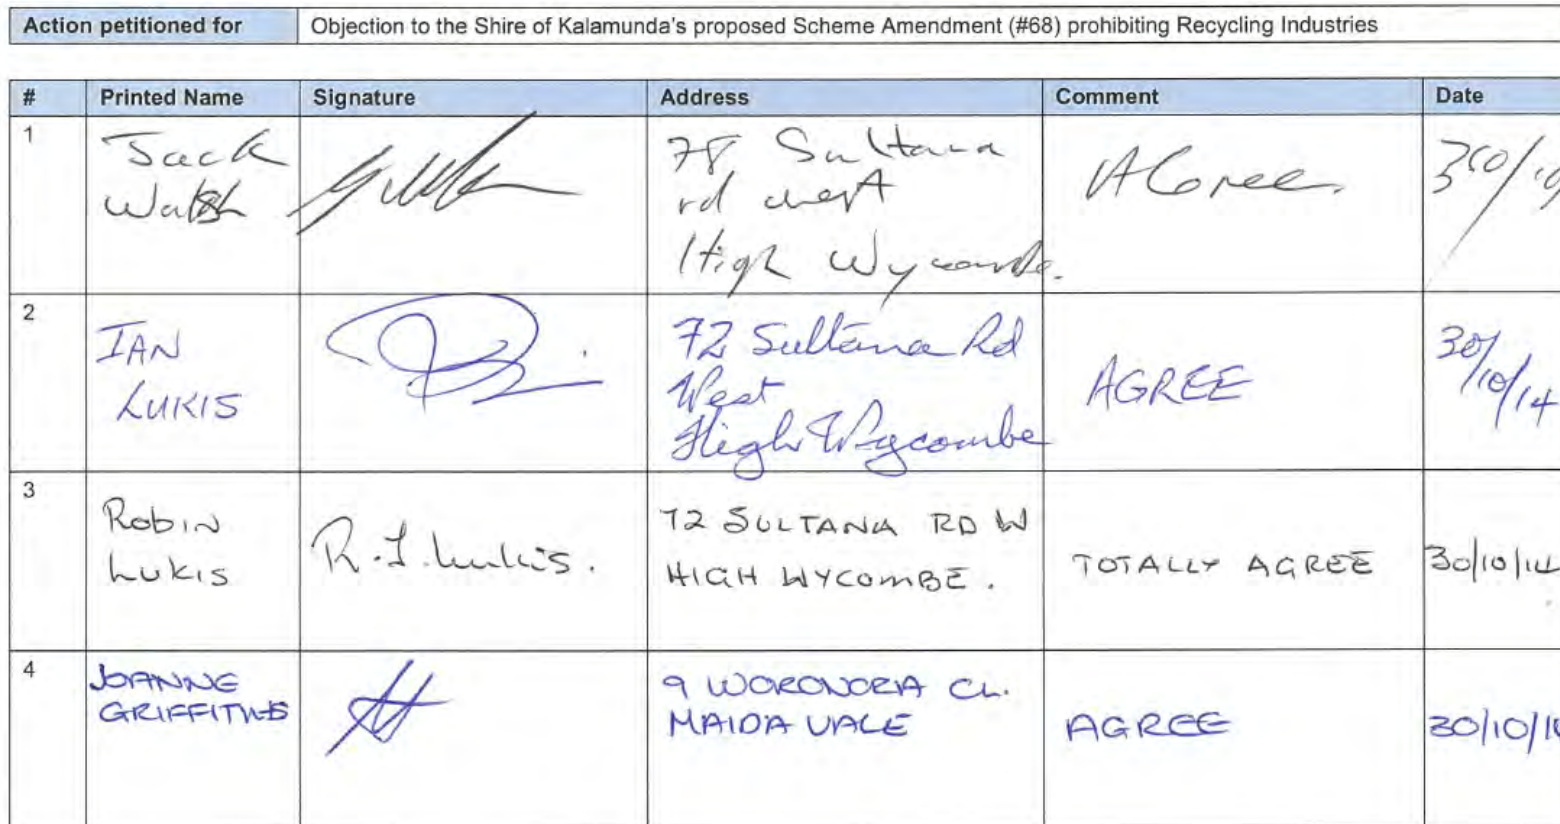 Action petitioned for Objection to the Shire of Kalamunda's proposed Scheme Amendment (#68) prohibiting Recycling Industries
# Printed Name Signature Address Comment Date
1
Jack
Walsh
78 Sultana
rd west
High Wycombe.
AGree.
30/10
2
IAN
LUKIS
72 Sultana Rd
West
High Wycombe
AGREE
30/10/14
3
Robin
LUKIS
R.J. Lukis.
72 SULTANA RD W
HIGH WYCOMBE.
TOTALLY AGREE
30/10/14
4
JOANNE
GRIFFITHS
9 WORONORA CL.
MAIDA VALE
AGREE
30/10/1